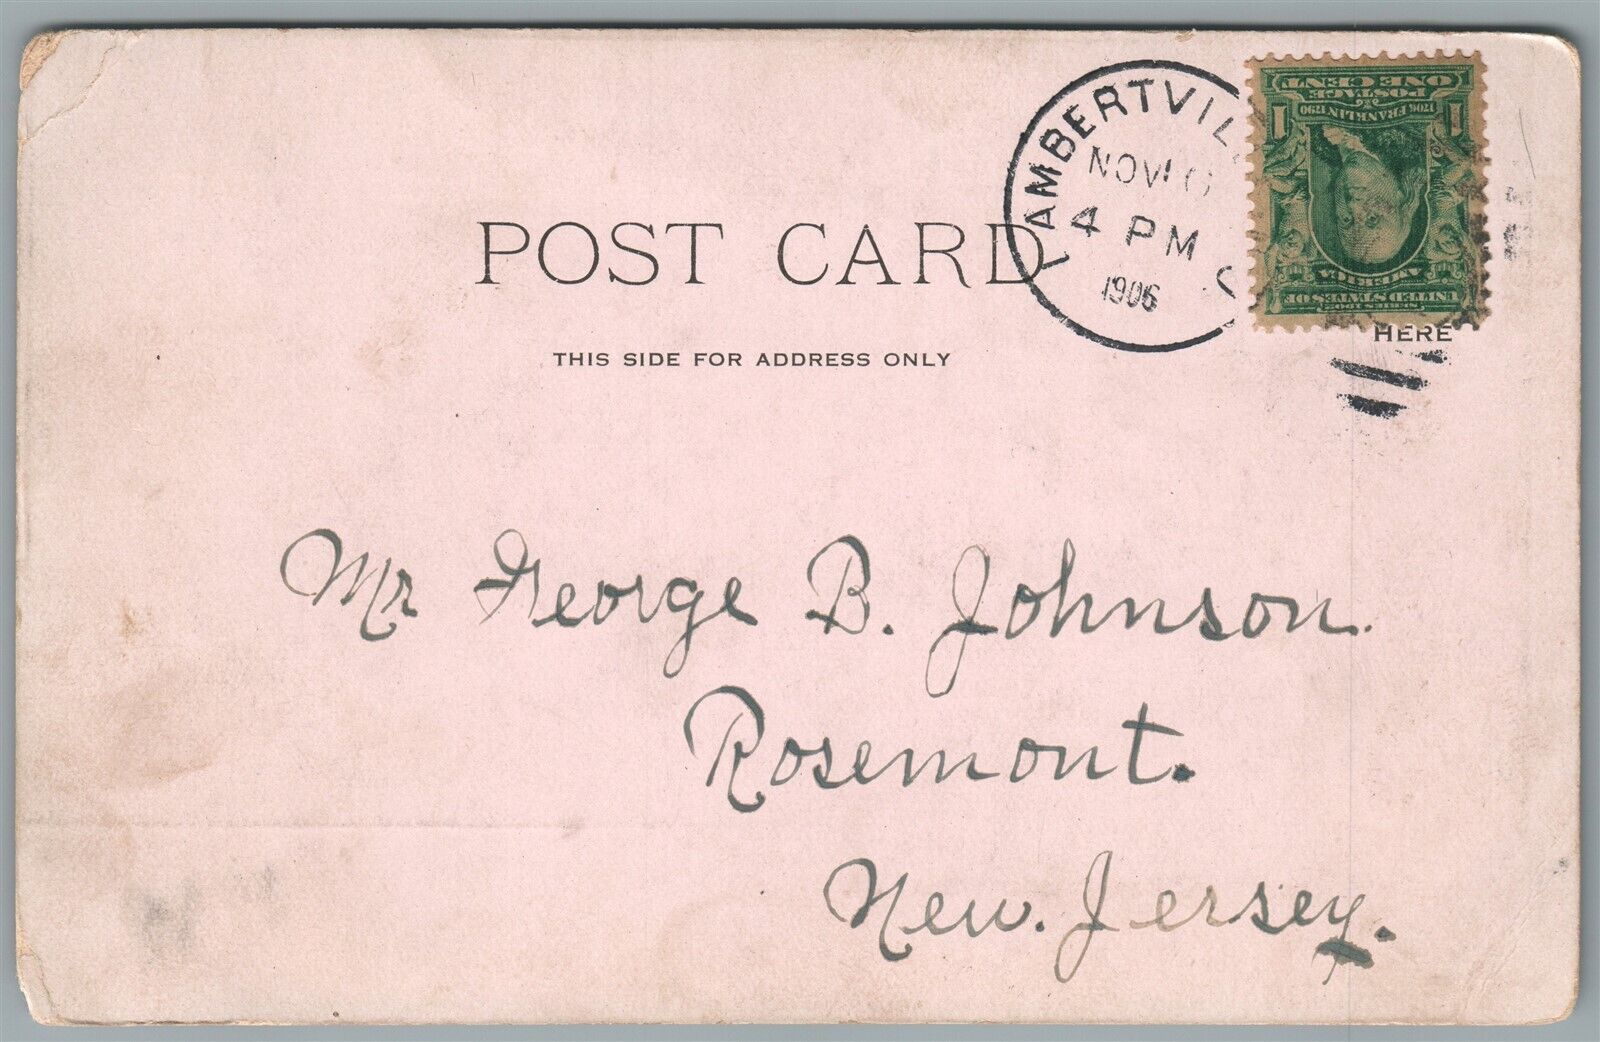 POST CARD
THIS SIDE FOR ADDRESS ONLY
LAMBERTVIL
NOV
4 PM
1906
ONE CENT
POSTAGE
1706 FRANKLIN 1790
1 1
AMERICA
UNITED STATES OF
SERIES 1902
HERE
Mr George B. Johnson.
Rosemont.
New. Jersey.